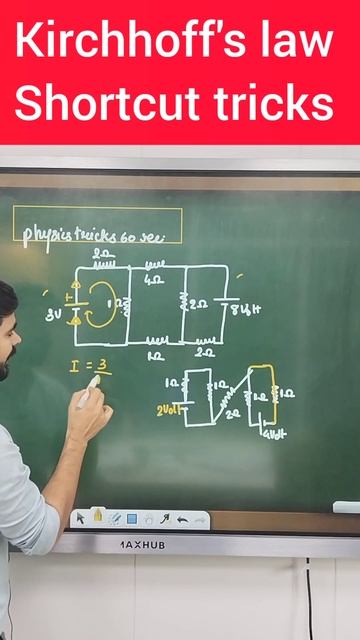 Kirchhoff's law
Shortcut tricks
physics tricks 60 sec.
2Ω
4Ω
3V
2Ω
8Volt
1Ω
2Ω
I = 3
1Ω
1Ω
1Ω
1Ω
2Volt
2Ω
4Volt
MAXHUB